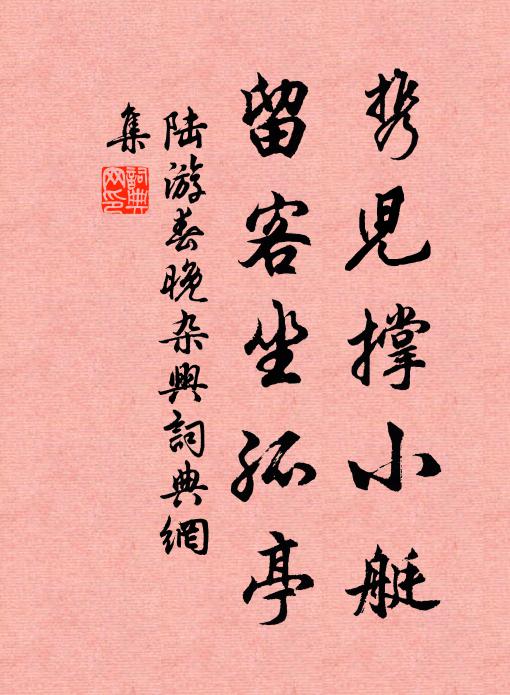 携兒撐小艇
留客坐孤亭
陆游春晚杂興詞典網
集
詞典
网印